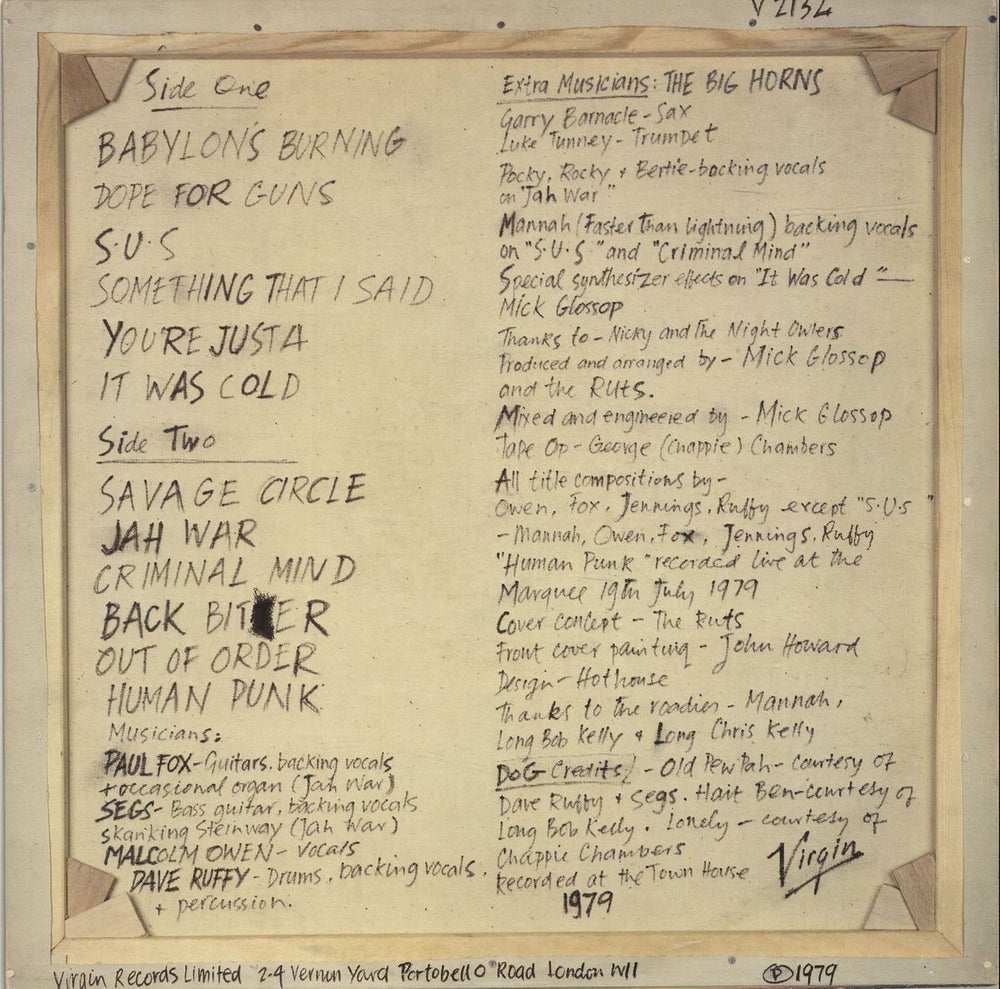 V 2132
Side One
BABYLON'S BURNING
DOPE FOR GUNS
S.U.S
SOMETHING THAT I SAID
YOU'RE JUST A
IT WAS COLD
Side Two
SAVAGE CIRCLE
JAH WAR
CRIMINAL MIND
BACK BITER
OUT OF ORDER
HUMAN PUNK
Musicians:
PAUL FOX-Guitars, backing vocals
+occasional organ (Jah War)
SEGS- Bass guitar, backing vocals
skanking Steinway (Jah War)
MALCOLM OWEN- vocals
DAVE RUFFY- Drums, backing vocals.
+ percussion.
Extra Musicians: THE BIG HORNS
Garry Barnacle-Sax
Luke Tunney-Trumpet
Pocky, Rocky + Bertie-backing vocals
on "Jah War"
Mannah (Faster Than Lightning) backing vocals
on "S.U.S" and "Criminal Mind"
Special synthesizer effects on "It Was Cold"—
Mick Glossop
Thanks to - Nicky and The Night Owlers
Produced and arranged by - Mick Glossop
and the Ruts.
Mixed and engineered by - Mick Glossop
Tape Op - George (Chappie) Chambers
All title compositions by-
Owen, Fox, Jennings, Ruffy except "S.U.S"
- Mannah, Owen, Fox, Jennings, Ruffy
"Human Punk" recorded live at the
Marquee 19th July 1979
Cover concept - The Ruts
Front cover painting - John Howard
Design - Hothouse
Thanks to the roadies - Mannah,
Long Bob Kelly + Long Chris Kelly
DOG Credits! - Old Pew Pah - courtesy of
Dave Ruffy + Segs. Hait Ben-courtesy of
Long Bob Kelly. Lonely - courtesy of
Chappie Chambers
Recorded at the Town House
1979
Virgin
Virgin Records Limited 2-4 Vernon Yard Portobello Road London W11
Ⓟ1979